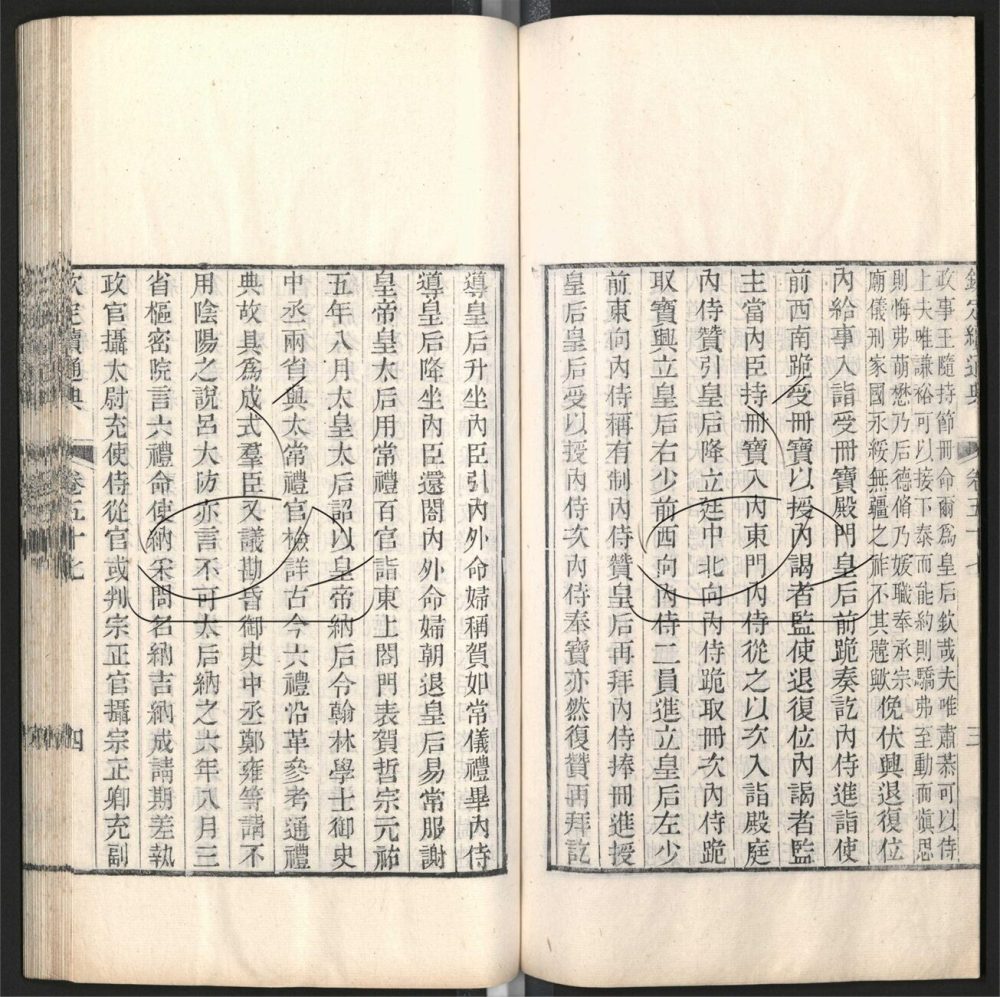 欽定續通典 卷五十七 三
政事王隨持節冊命爾爲皇后欽哉夫唯肅恭可以侍
上夫唯謙裕可以接下泰而能約則驕弗至動而愼思
則悔弗萌懋乃后德脩乃嬪職奉承宗
廟儀刑家國永綏無疆之祚不其韙歟俛伏興退復位
內給事入詣受冊寶殿門皇后前跪奏訖內侍進詣使
前西南跪受冊寶以授內謁者監使退復位內謁者監
主當內臣持冊寶入內東門內侍從之以次入詣殿庭
內侍贊引皇后降立廷中北向內侍跪取冊次內侍跪
取寶興立皇后右少前西向內侍二員進立皇后左少
前東向內侍稱有制內侍贊皇后再拜內侍捧冊進授
皇后皇后受以授內侍次內侍奉寶亦然復贊再拜訖
導皇后升坐內臣引內外命婦稱賀如常儀禮畢內侍
導皇后降坐內臣還閤內外命婦朝退皇后易常服謝
皇帝皇太后用常禮百官詣東上閤門表賀哲宗元祐
五年八月太皇太后詔以皇帝納后令翰林學士御史
中丞兩省與太常禮官檢詳古今六禮沿革參考通禮
典故具爲成式羣臣又議勘昏御史中丞鄭雍等請不
用陰陽之說呂大防亦言不可太后納之六年八月三
省樞密院言六禮命使納采問名納吉納成請期差執
政官攝太尉充使侍從官或判宗正官攝宗正卿充副
欽定續通典 卷五十七 四